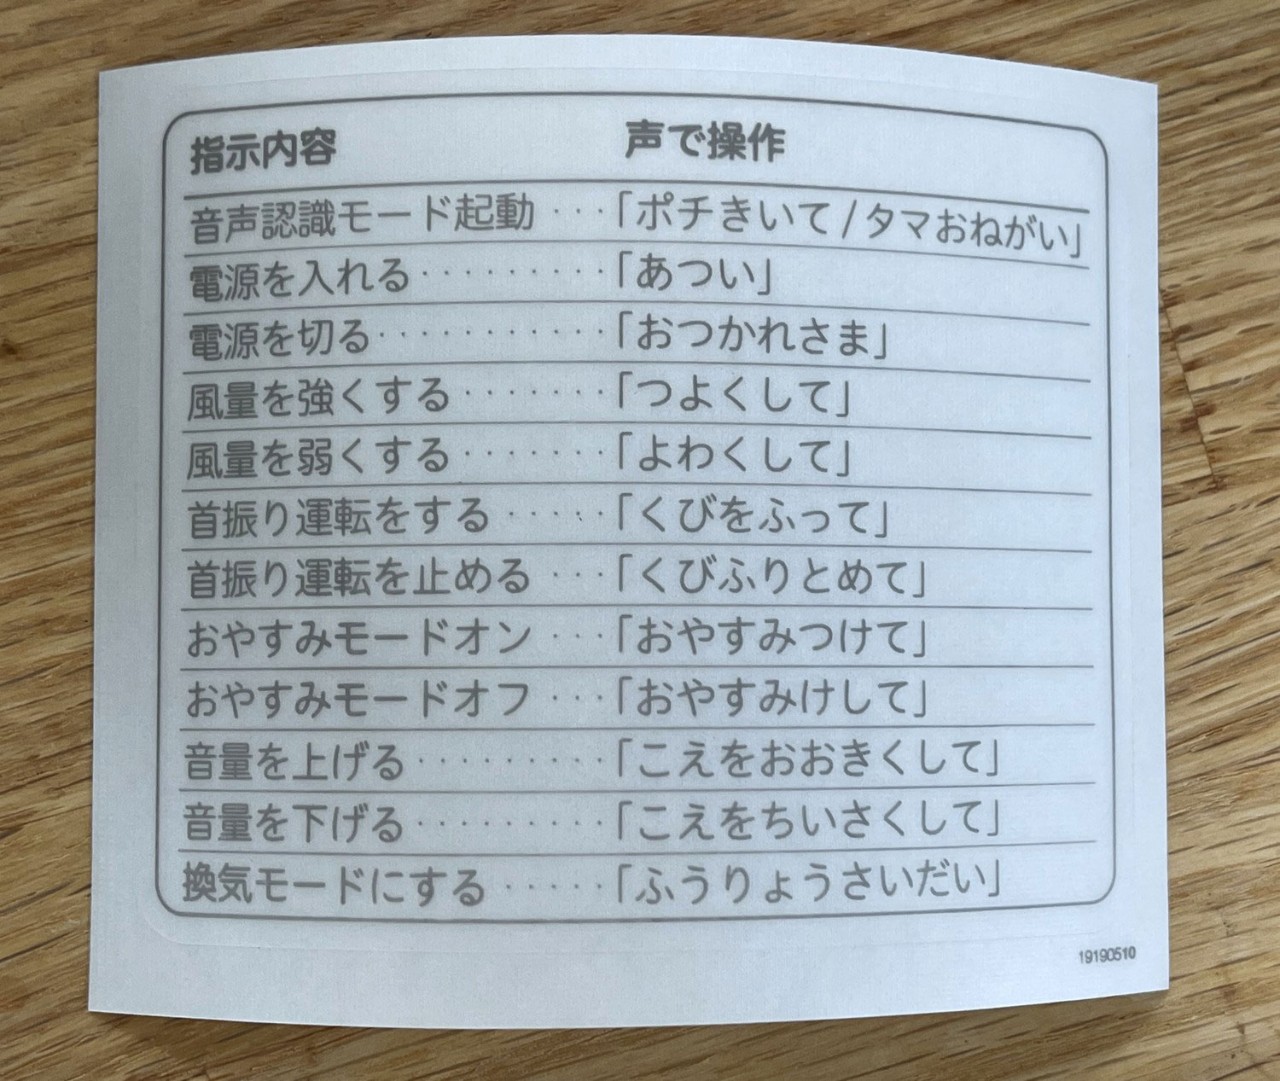 指示内容 声で操作
音声認識モード起動 ···「ポチきいて/タマおねがい」
電源を入れる ··········「あつい」
電源を切る ············「おつかれさま」
風量を強くする ········「つよくして」
風量を弱くする ········「よわくして」
首振り運転をする ·····「くびをふって」
首振り運転を止める ···「くびふりとめて」
おやすみモードオン ···「おやすみつけて」
おやすみモードオフ ···「おやすみけして」
音量を上げる ··········「こえをおおきくして」
音量を下げる ··········「こえをちいさくして」
換気モードにする ·····「ふうりょうさいだい」
19190510